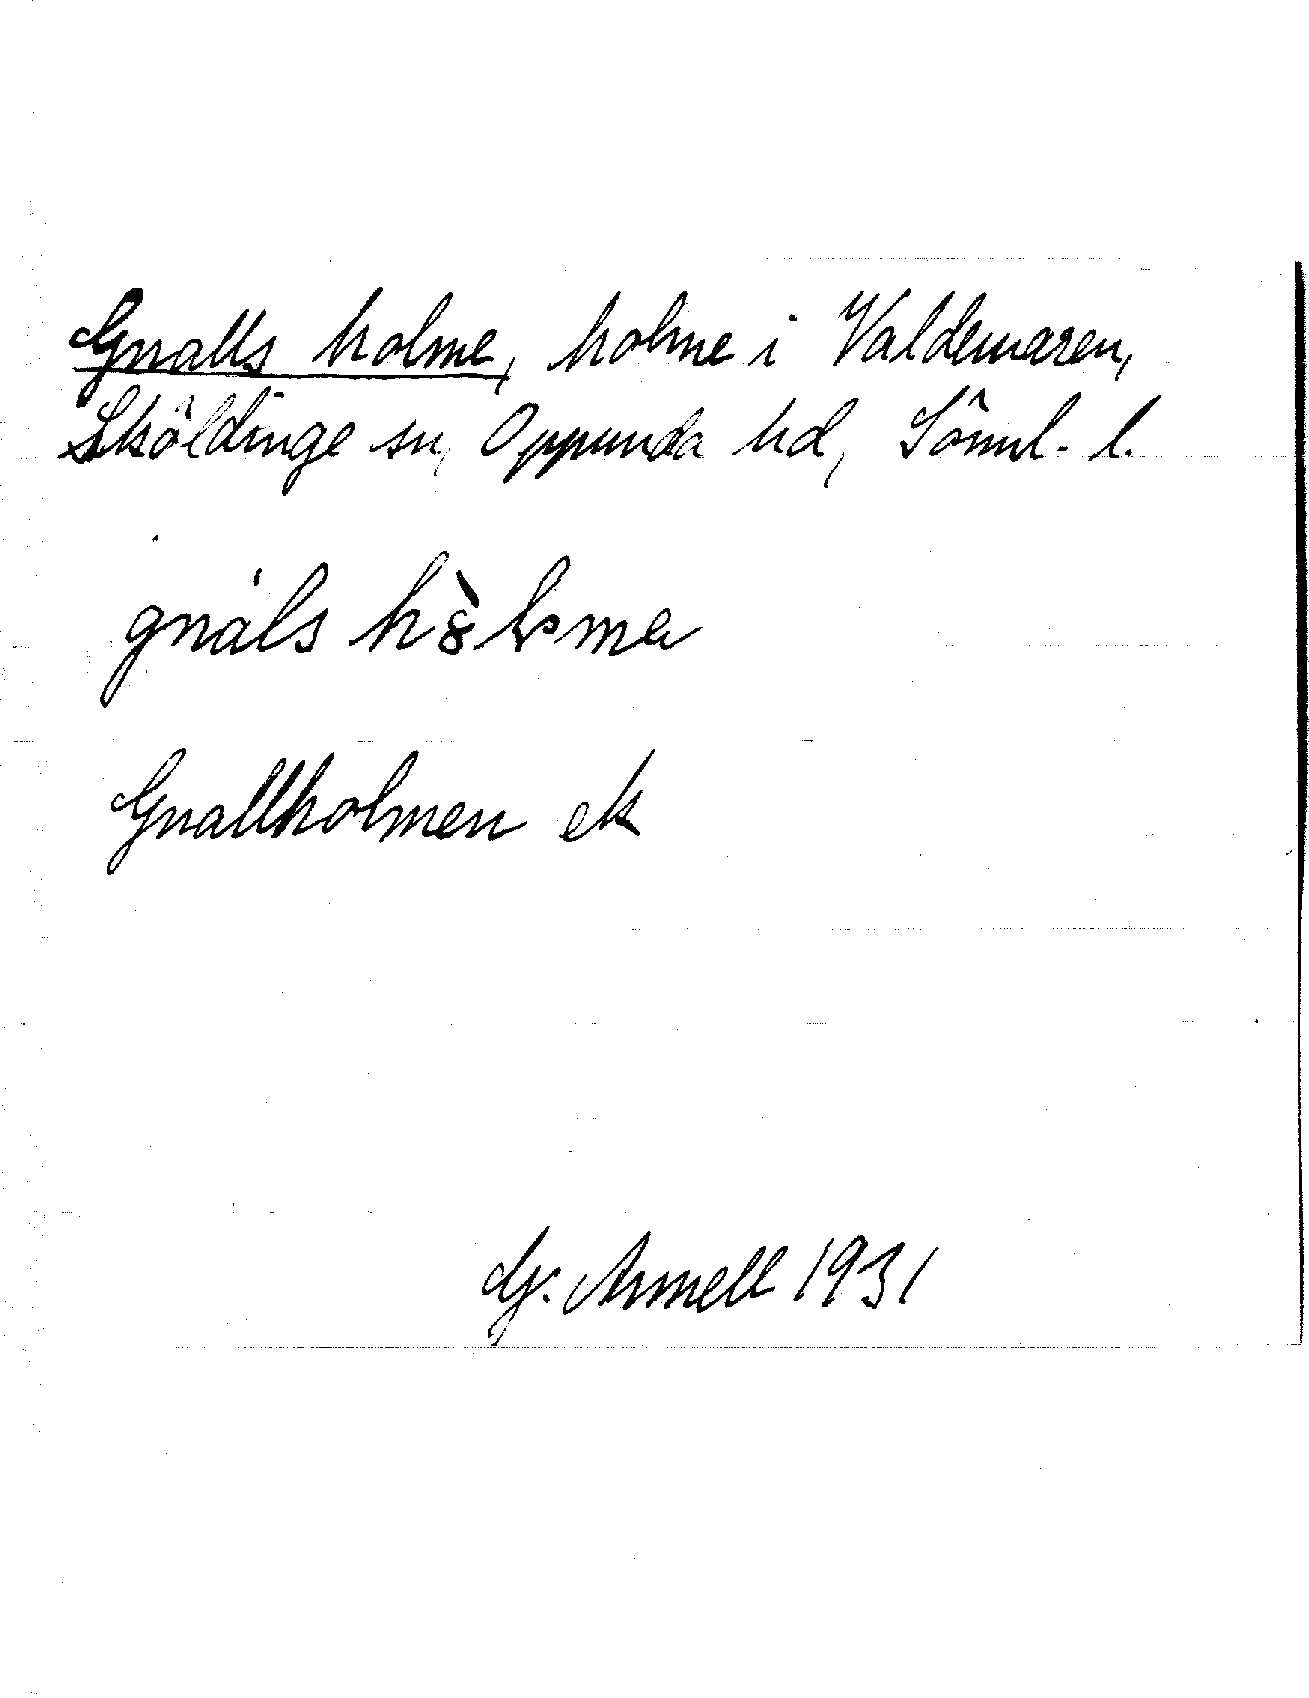 Gnalls holme, holme i Valdemaren,
Sköldinge sn, Oppunda hd, Söml. l.
gnáls
Gnallholmen ek
G. Armell 1931